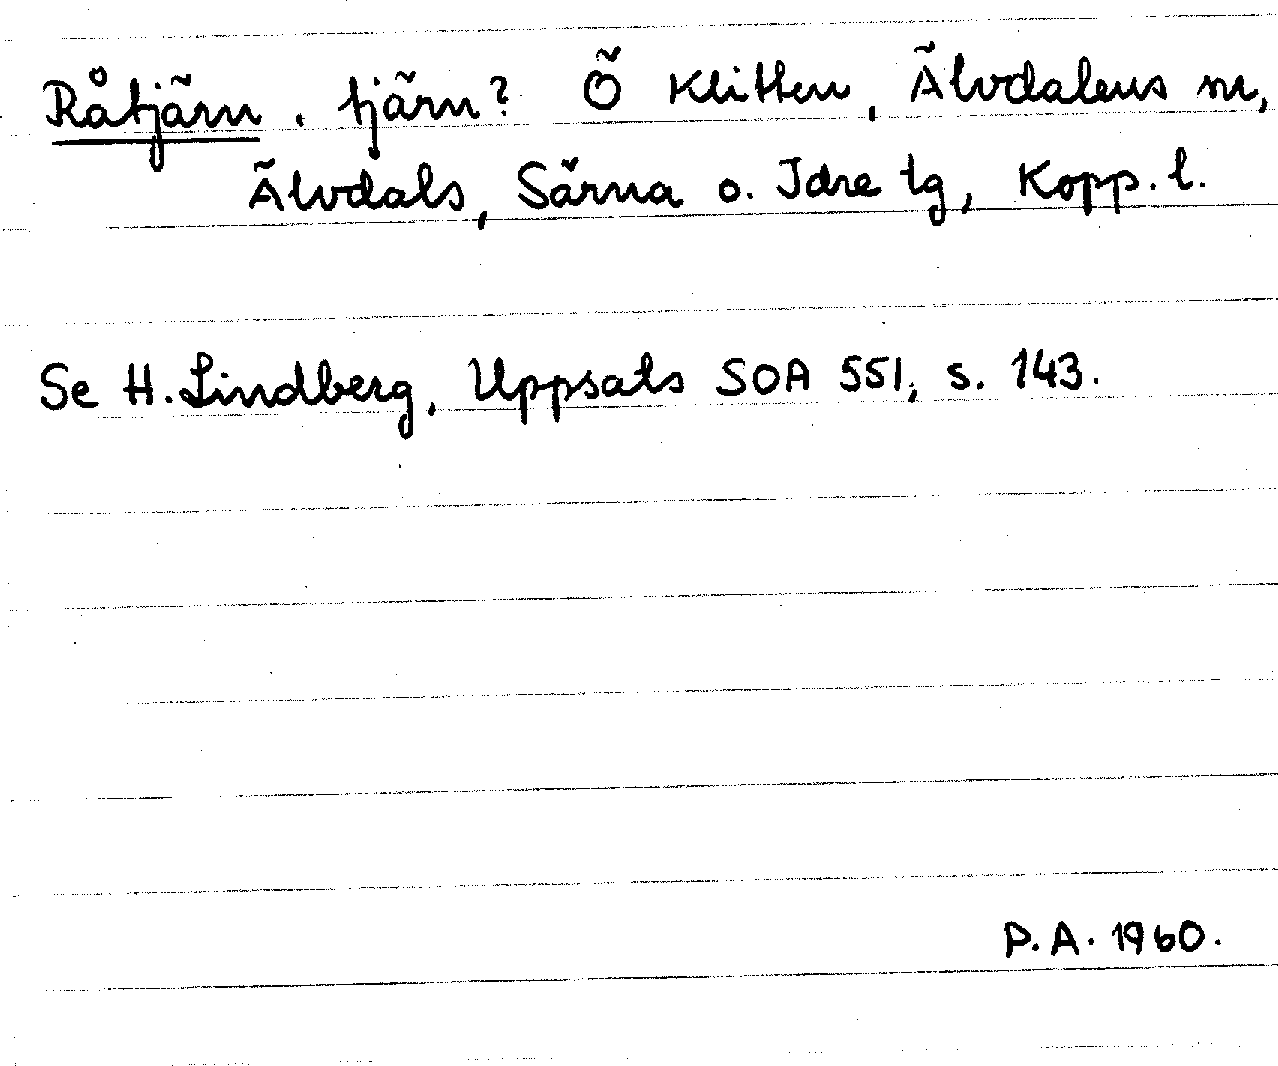 Råtjärn. tjärn? Ö Klitten, Älvdalens sn,
Älvdals, Särna o. Idre tg, Kopp. l.
Se H. Lindberg, Uppsats SOA 551, s. 143.
P.A. 1960.